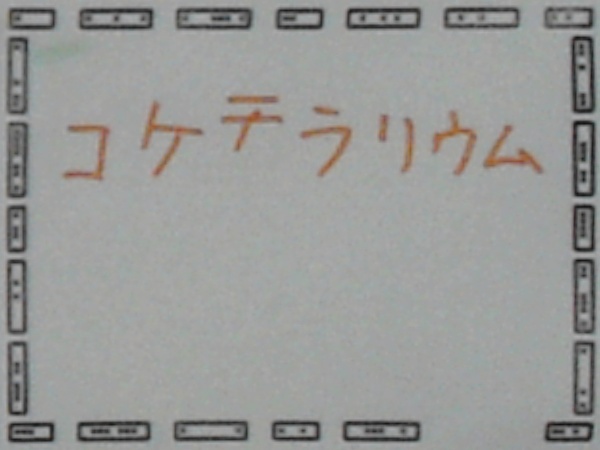 コケテラリウム